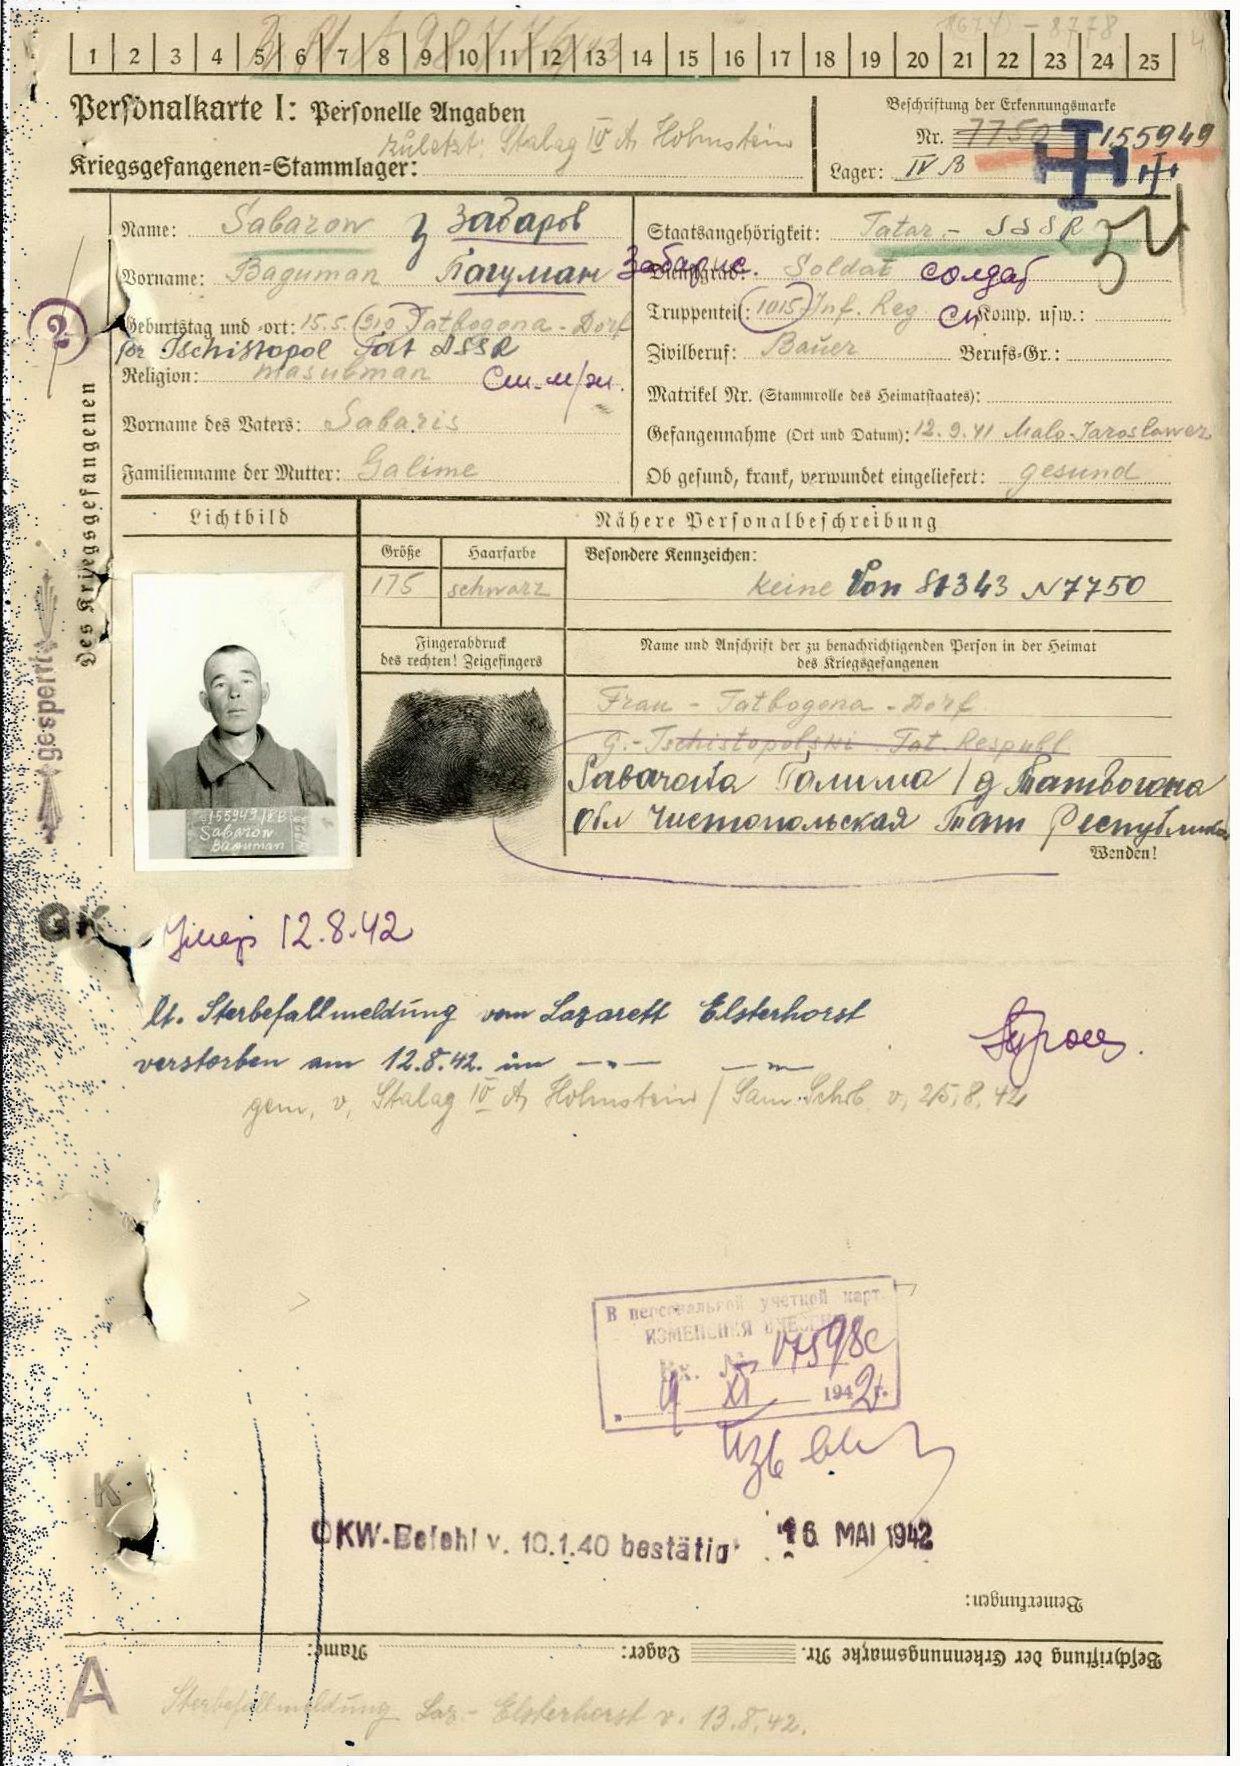 1 2 3 4 5 6 7 8 9 10 11 12 13 14 15 16 17 18 19 20 21 22 23 24 25
Personalkarte I: Personelle Angaben
zuletzt: Stalag IV A Hohnstein
Kriegsgefangenen-Stammlager:
Beschriftung der Erkennungsmarke
Nr. 7750 155949
Lager: IV B
Des Kriegsgefangenen
gesperrt
Name: Sabarow Забаров
Vorname: Baguman Багуман Забарис.
Geburtstag und -ort: 15.5.910 Tatbogona-Dorf
Tschistopol Tat ASSR
Religion: masulman См.
Vorname des Vaters: Sabaris
Familienname der Mutter: Galime
Staatsangehörigkeit: Tatar - SSSR
34
Dienstgrad: Soldat солдат
Truppenteil: 1015 Inf. Reg Komp. usw.:
Zivilberuf: Bauer Berufs-Gr.:
Matrikel Nr. (Stammrolle des Heimatstaates):
Gefangennahme (Ort und Datum): 12.9.41 Malo-Jaroslawez
Ob gesund, krank, verwundet eingeliefert: gesund
Lichtbild
Nähere Personalbeschreibung
Größe Haarfarbe Besondere Kennzeichen:
175 schwarz keine Von St 343 N 7750
Fingerabdruck
des rechten! Zeigefingers
Name und Anschrift der zu benachrichtigenden Person in der Heimat
des Kriegsgefangenen
Frau - Tatbogona - Dorf
G.-Tschistopolski Tat. Respubl
Галима / д Татвогона
Обл Чистопольская Тат Республика
Wenden!
155949/IVB
Sabarow
Baguman
GK
Умер 12.8.42
lt. Sterbefallmeldung vom Lazarett Elsterhorst
verstorben am 12.8.42. im — " — — " —
gem. v. Stalag IV A Hohnstein / Sam. Schb. v. 25.8.42
В персональной учетной карт.
ИЗМЕНЕНИЯ ВНЕСЕНЫ
Вх. № 17598с
9 XI 1942 г.
K
OKW-Befehl v. 10.1.40 bestätigt 16. MAI 1942
Bemerkungen:
Beschriftung der Erkennungsmarke Nr. Lager: Name:
A
Sterbefallmeldung Laz-Elsterhorst v. 13.8.42.